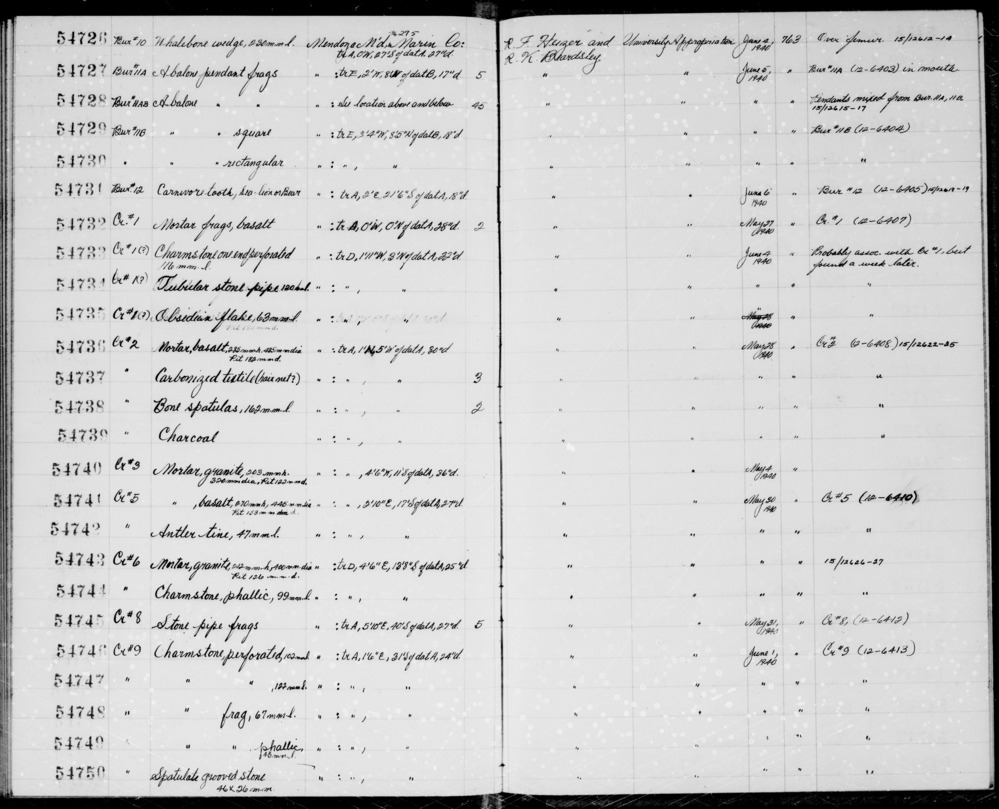 54726 Bur #10 Whalebone wedge, 230 mm l. Mendoza Md. Mrn 275 Marin Co: R. F. Heizer and University Appropriation June 2, 1940 763 Over femur 15/12612-14
tr A, 0'W, 27'S of dat A, 27"d. R. K. Beardsley
54727 Bur #11A Abalone pendant frags " : tr E, 2'W, 8'W of dat B, 17"d 5 " " June 5, 1940 " Bur #11A (12-6403) in mouth
54728 Bur #11AB Abalone " " " : see location above and below 45 " " " " Pendants mixed from Bur. 11A, 11B
15/12615-17
54729 Bur #11B " " square " : tr E, 3'4"W, 8'5"N of dat B, 18"d " " " " Bur #11B (12-6404)
54730 " " " rectangular " : " , " " " " " "
54731 Bur #12 Carnivore tooth, sea-lion or bear " : tr A, 2'E, 21'6"S of dat A, 18"d " " June 6 1940 " Bur #12 (12-6405) 15/12618-19
54732 Cr. #1 Mortar frags, basalt " : tr D, 0'W, 0'N of dat A, 28"d. 2 " " May 27 1940 " Cr. #1 (12-6407)
54733 Cr #1(?) Charmstone one end perforated " : tr D, 1'11"W, 3'N of dat A, 22"d " " June 4 1940 " Probably assoc. with Cr #1, but
176 mm. l. found a week later.
54734 Cr# 1(?) Tubular stone pipe 120 mm l. " : " , " " " " " "
54735 Cr #1(?) Obsidian flake, 63 mm l. " : " , " " " May 28 1940 " "
54736 Cr #2 Mortar, basalt, " : tr A, 5'W of dat A, 30"d " " May 28 1940 " Cr 2 (12-6408) 15/12622-25
Pit 182 mm d.
54737 " Carbonized textile (hair net?) " : " , " 3 " " " " "
54738 " Bone spatulas, 162 mm l. " : " , " 2 " " " " "
54739 " Charcoal " : " , " " " " " "
54740 Cr #3 Mortar, granite, 203 mm h. " : " , 4'6"W, 11'S of dat A, 36"d. " " May 4 1940 "
320 mm dia, Pit 122 mm d.
54741 Cr #5 " , basalt, 270 mm h, 440 mm dia " : " , 2'10"E, 17'S of dat A, 27"d " " May 30 1940 " Cr #5 (12-6410)
Pit 153 mm d.
54742 " Antler tine, 47 mm l. " : " , " " " " " "
54743 Cr #6 Mortar, granite, " : tr D, 4'6"E, 13'8"S of dat A, 25"d " " " " 15/12626-27
Pit 126 mm d.
54744 " Charmstone, phallic, 99 mm l " : " , " " " " " "
54745 Cr #8 Stone pipe frags " : tr A, 5'10"E, 40'S of dat A, 27"d 5 " " May 31, 1940 " Cr #8, (12-6412)
54746 Cr #9 Charmstone, perforated, 102 mm l " : tr A, 1'6"E, 31'S of dat A, 24"d. " " June 1, 1940 " Cr #9 (12-6413)
54747 " " " , 122 mm l. " : " , " " " " " "
54748 " " frag, 67 mm l. " : " , " " " " " "
54749 " " " phallic, " : " , " " " " " "
54750 " Spatulate grooved stone " : " , " " " " " "
46 x 26 mm